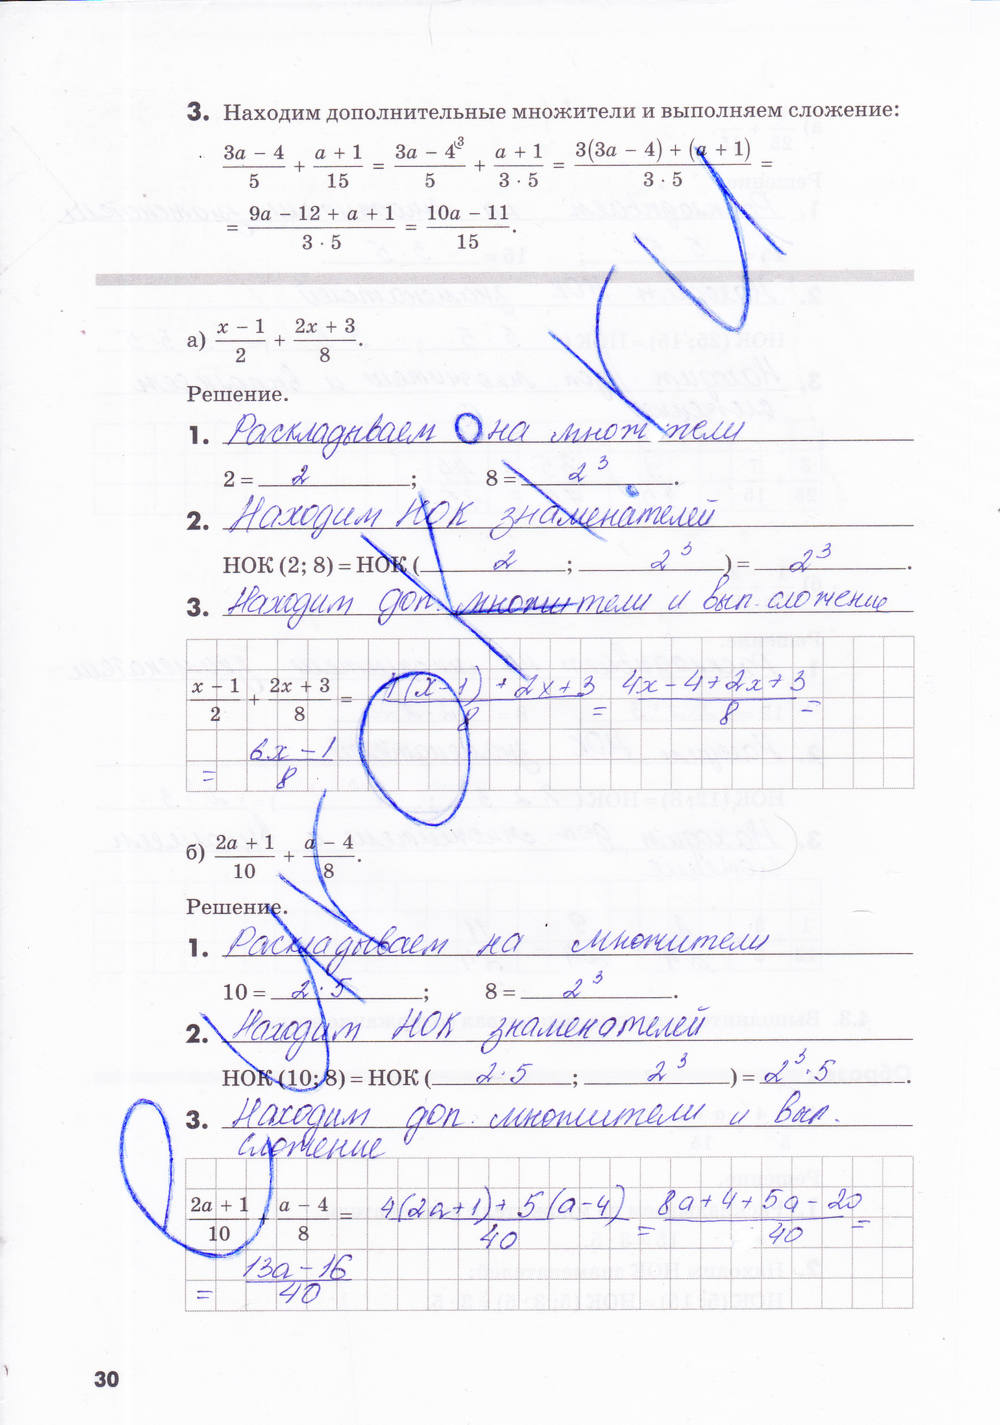 3. Находим дополнительные множители и выполняем сложение:
(3a − 4)/5 + (a + 1)/15 = (3a − 4)/5 ³ + (a + 1)/(3 · 5) = (3(3a − 4) + (a + 1))/(3 · 5) =
= (9a − 12 + a + 1)/(3 · 5) = (10a − 11)/15.
а) (x − 1)/2 + (2x + 3)/8.
Решение.
1. Раскладываем на множители
2 = 2; 8 = 2³.
2. Находим НОК знаменателей
НОК (2; 8) = НОК (2; 2³) = 2³.
3. Находим доп. множители и вып. сложение
(x − 1)/2 + (2x + 3)/8 = (4(x−1) + 2x+3)/8 = (4x−4+2x+3)/8 =
= (6x−1)/8
б) (2a + 1)/10 + (a − 4)/8.
Решение.
1. Раскладываем на множители
10 = 2·5; 8 = 2³.
2. Находим НОК знаменателей
НОК (10; 8) = НОК (2·5; 2³) = 2³·5.
3. Находим доп. множители и вып.
сложение
(2a + 1)/10 + (a − 4)/8 = (4(2a+1) + 5(a−4))/40 = (8a+4+5a−20)/40 =
= (13a−16)/40
30